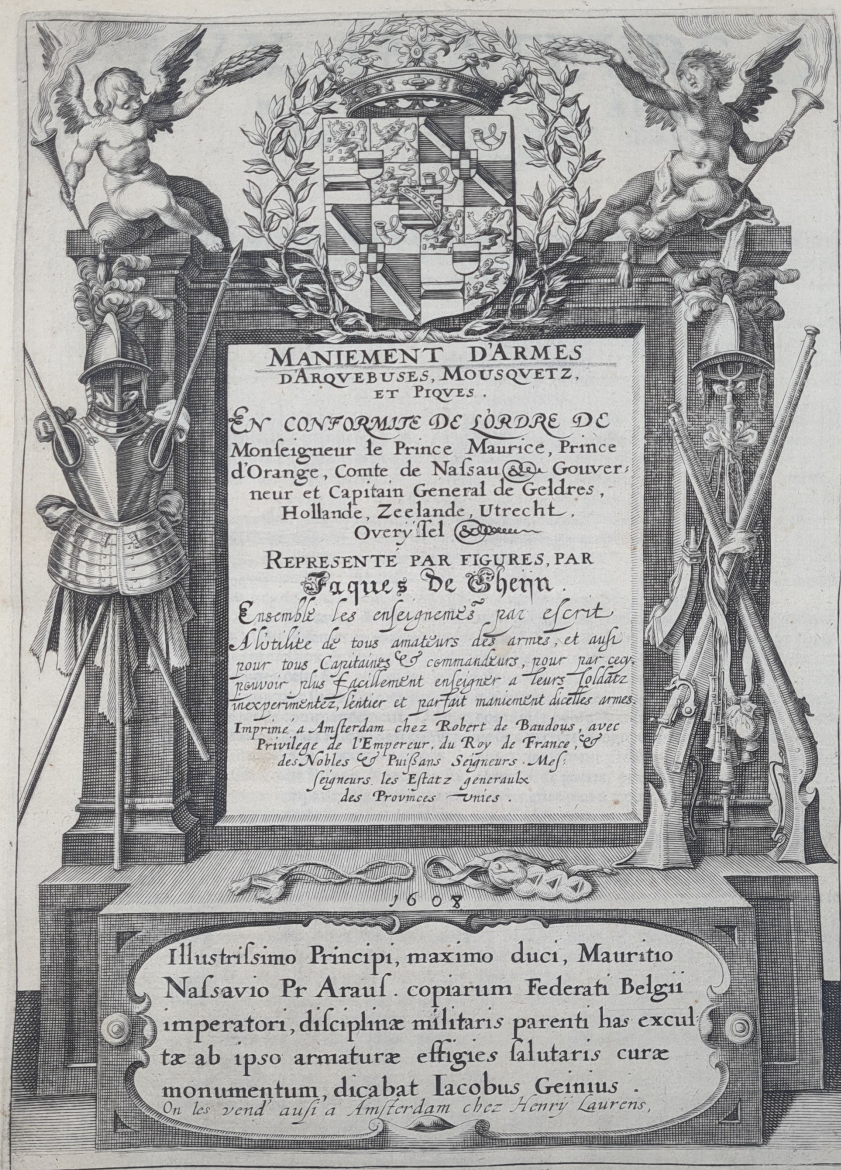 MANIEMENT D'ARMES
D'ARQVEBUSES, MOUSQVETZ,
ET PIQVES.
EN CONFORMITE DE L'ORDRE DE
Monſeigneur le Prince Maurice, Prince
d'Orange, Comte de Naſsau &c. Gouver:
neur et Capitain General de Geldres,
Hollande, Zeelande, Utrecht,
Overyſsel &c.
REPRESENTE PAR FIGURES, PAR
Jaques de Gheÿn.
Enſemble les enſeignemẽs par eſcrit
A l'utilite de tous amateurs des armes, et auſi
pour tous Capitaines & commandeurs, pour par cecy,
pouvoir plus facillement enſeigner a leurs ſoldatz
inexperimentez, l'entier et parfait maniement dicelles armes.
Imprimé a Amſterdam chez Robert de Baudous, avec
Privilege de l'Empereur, du Roy de France, &
des Nobles & Puiſsans Seigneurs. Meſ:
ſeigneurs les Eſtatz generaulx
des Provinces Unies.
1608
Illustriſsimo Principi, maximo duci, Mauritio
Naſsavio Pr Arauſ. copiarum Federati Belgii
imperatori, diſciplinæ militaris parenti has excul
tæ ab ipso armaturæ effigies ſalutaris curæ
monumentum, dicabat Iacobus Geinius.
On les vend auſi a Amſterdam chez Henrÿ Laurens,